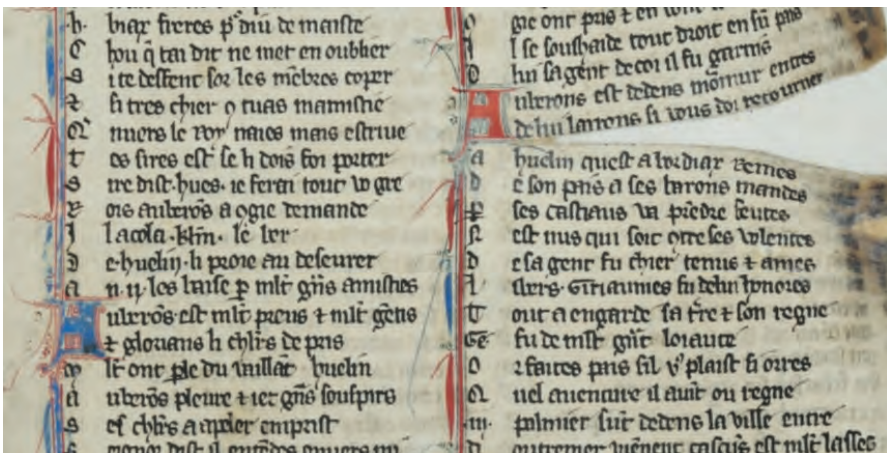 .h. biax freres p̃ diu de maiste
C hou q̃ tai dit ne met en oublier
S i te deffent sor les mẽbres coper
& si tres chier o tu as mamistie
N nuers le roy naies mais estriue
t es sires est se li dois foi porter
s ire dist .hues. ie ferai tout vo gre
R ois auberõs a ogie demande
J l acola .kl'm. le ber
d e huelin. li proie au deseurer
a n .ij. les baise p mlt grñs amisties
A uberõs est mlt preus & mlt gẽtis
& glorians li chl'rs de pris
M lt ont ple du vaillãt huelin
a uberõs pleure & iet grñs souspirs
s es chl'rs a apler emprist
gie ont pris & en
J l se souhaide tout droit en sũ pais
D lui sa gent decoi il fu garnis
A uberons est dedens mõmur entres
de lui lairons si vous doi retourner
a huelin quest a bordiax remes
d e son pais a ses barons mandes
P ses castiaus va prẽdre feutes
N est nus qui soit ɔtre ses volentes
D e sa gent fu chier tenus & ames
A sters. Guiaumes fu de lui hõnores
T out a engarde sa t're & son regne
Ge fu de mlt grãt loiaute
O r faites pais sil v9 plaist si orres
Q uel auenture il auit ou regne
.iij. palmier sũt dedens la ville entre
D outremer vienent cascũs est mlt lasses